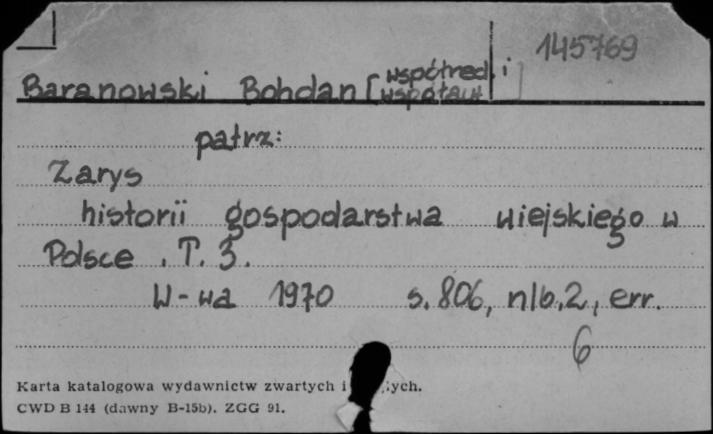 145769
Baranowski Bohdan [współred. i współaut]
patrz:
Zarys
historii gospodarstwa wiejskiego w
Polsce . T. 3.
W-wa 1970 s. 806, nlb. 2, err.
6
Karta katalogowa wydawnictw zwartych i
CWD B 144 (dawny B-15b). ZGG 91.